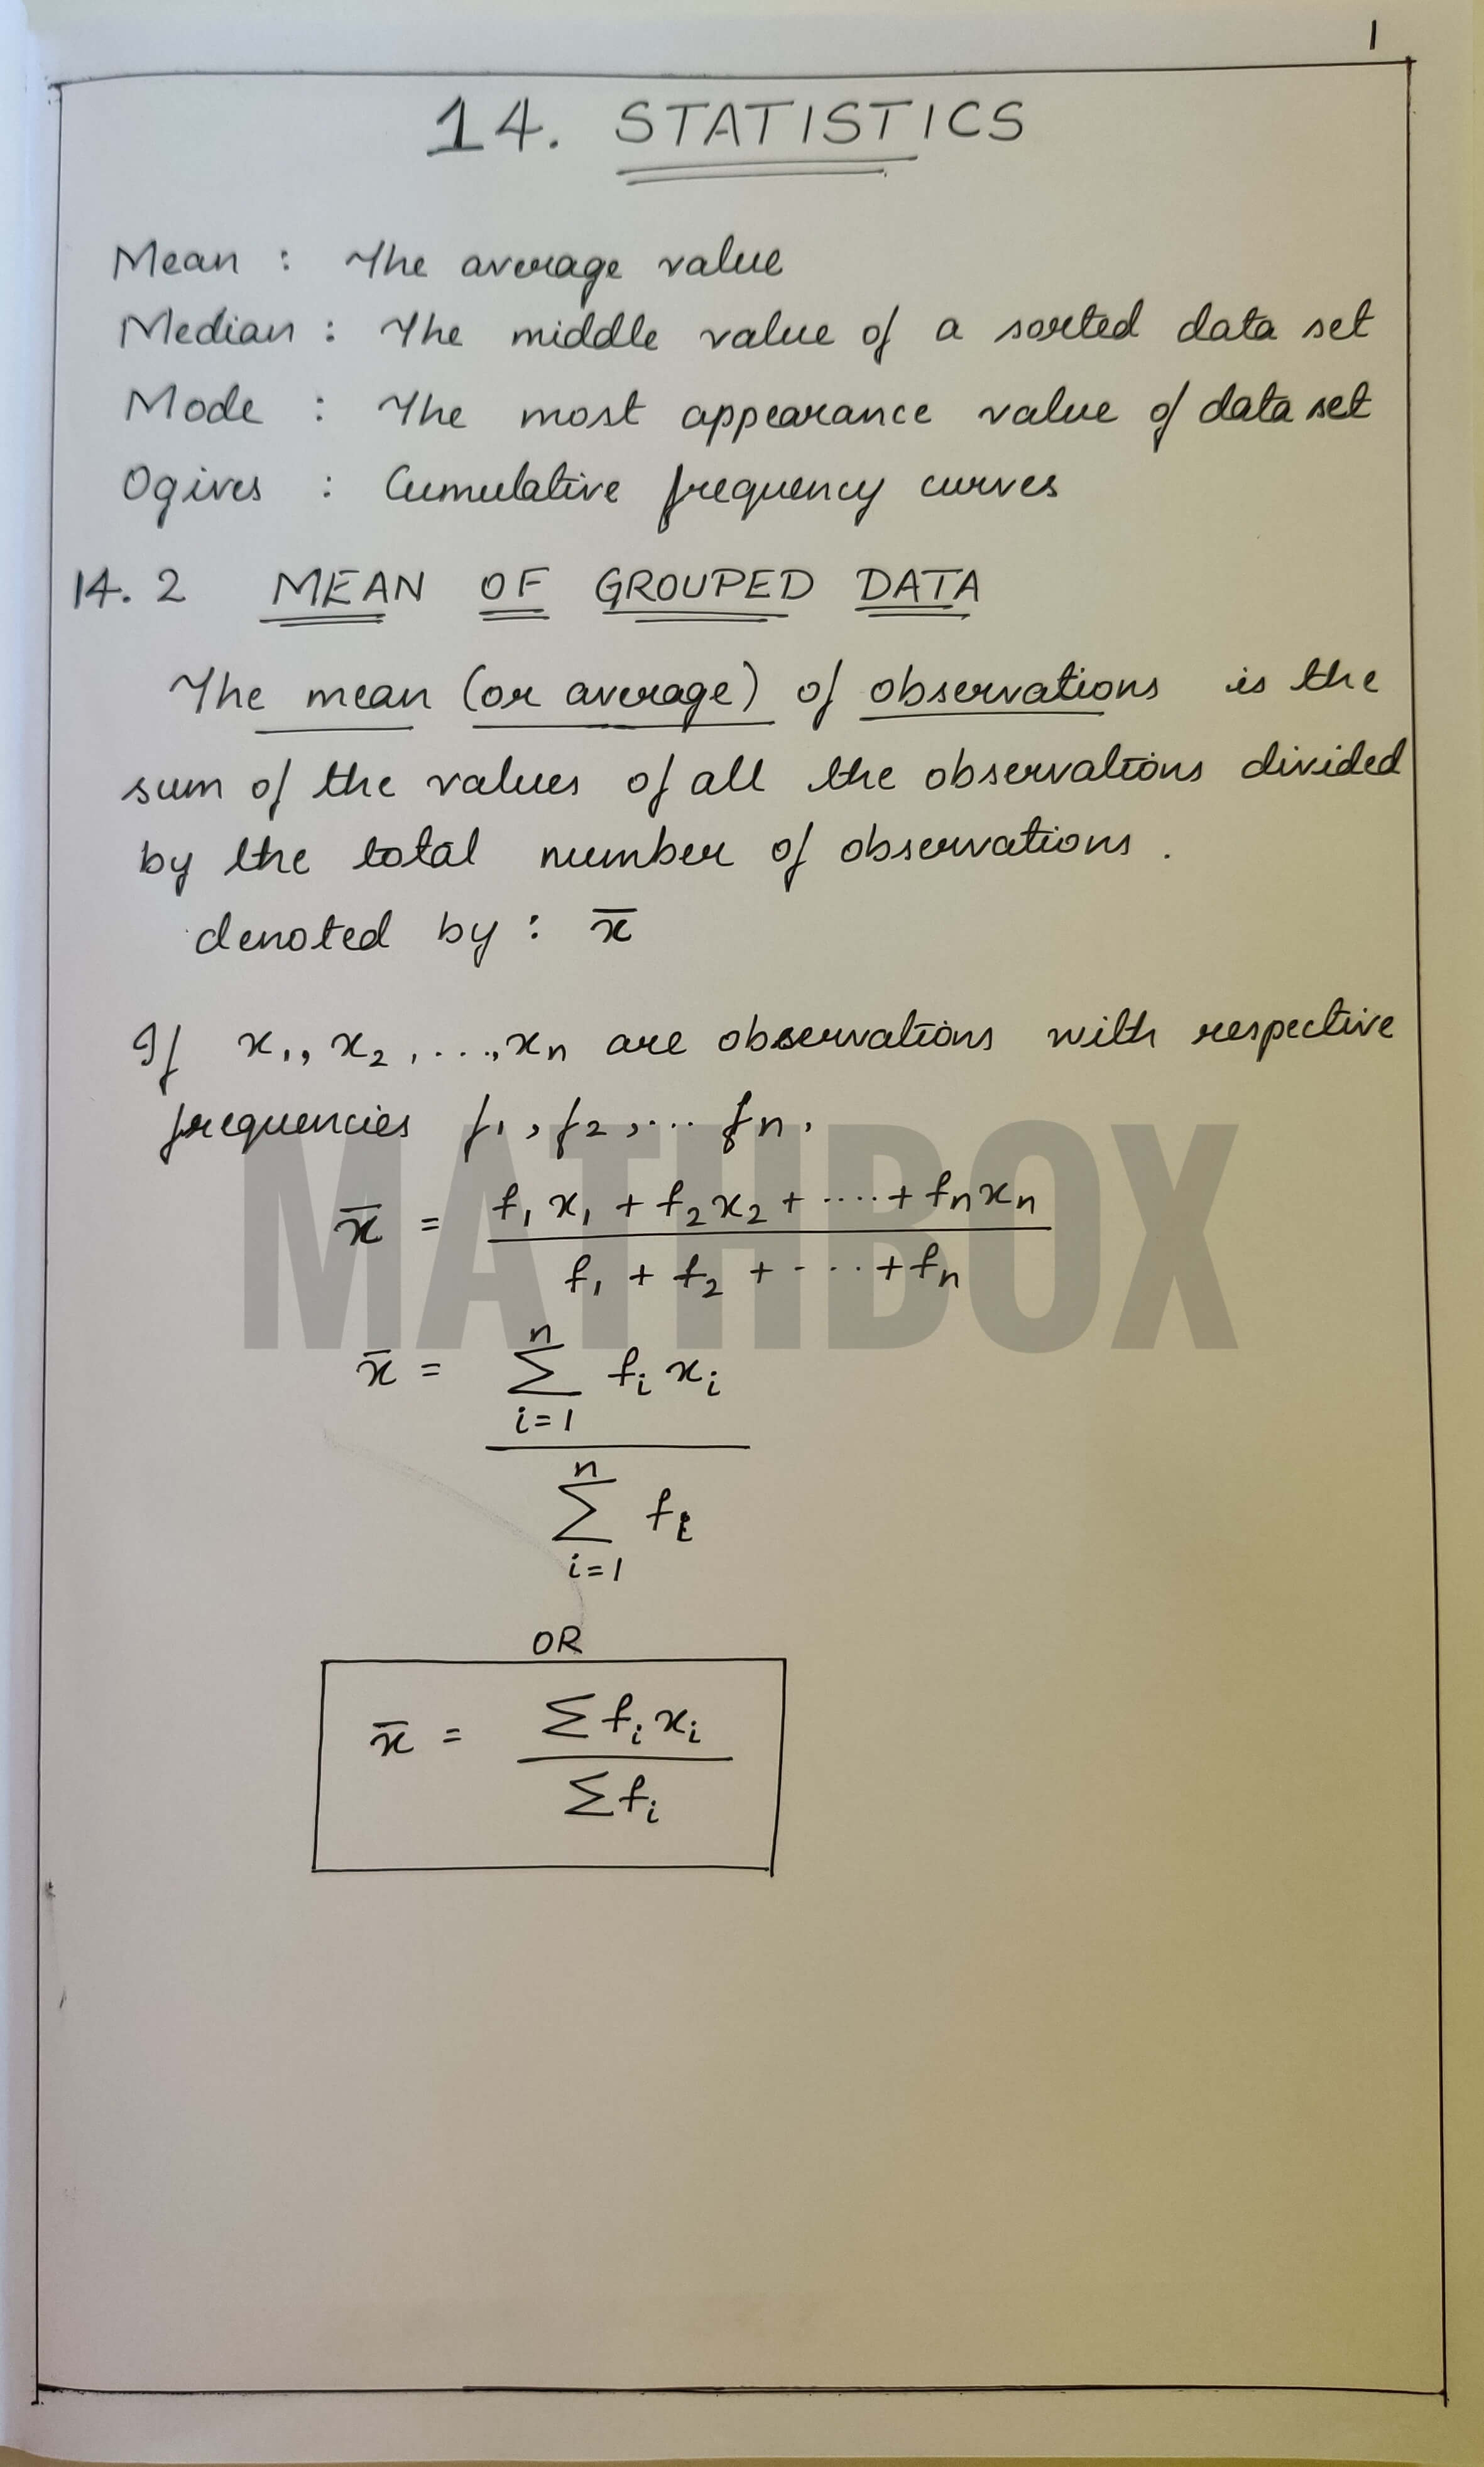 1
14. STATISTICS
Mean : The average value
Median : The middle value of a sorted data set
Mode : The most appearance value of data set
Ogives : Cumulative frequency curves
14.2 MEAN OF GROUPED DATA
The mean (or average) of observations is the
sum of the values of all the observations divided
by the total number of observations.
denoted by : x̄
If x₁, x₂, ..., xₙ are observations with respective
frequencies f₁, f₂, ... fₙ.
MATHBOX
x̄ = f₁x₁ + f₂x₂ + ..... + fₙxₙ
f₁ + f₂ + ..... + fₙ
n
x̄ = Σ fᵢxᵢ
i=1
n
Σ fᵢ
i=1
OR
x̄ = Σfᵢxᵢ
Σfᵢ